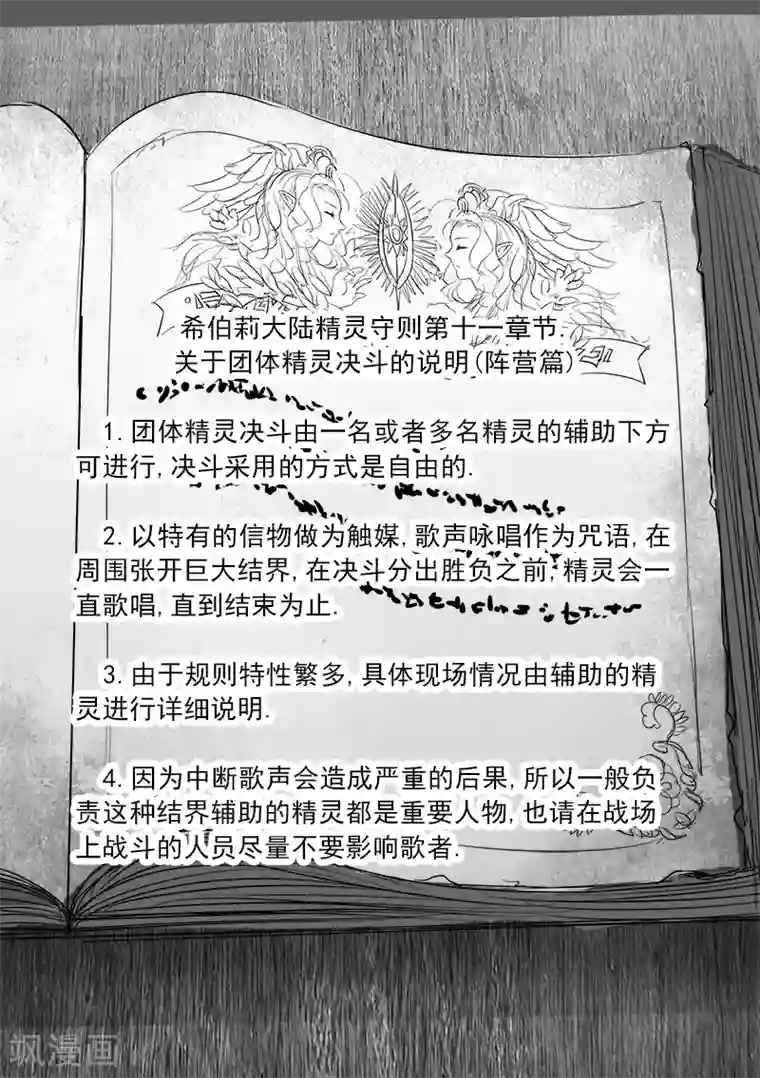 希伯莉大陆精灵守则第十一章节.
关于团体精灵决斗的说明(阵营篇)
1.团体精灵决斗由一名或者多名精灵的辅助下方
可进行,决斗采用的方式是自由的.
2.以特有的信物做为触媒,歌声咏唱作为咒语,在
周围张开巨大结界,在决斗分出胜负之前,精灵会一
直歌唱,直到结束为止.
3.由于规则特性繁多,具体现场情况由辅助的精
灵进行详细说明.
4.因为中断歌声会造成严重的后果,所以一般负
责这种结界辅助的精灵都是重要人物,也请在战场
上战斗的人员尽量不要影响歌者.
飒漫画